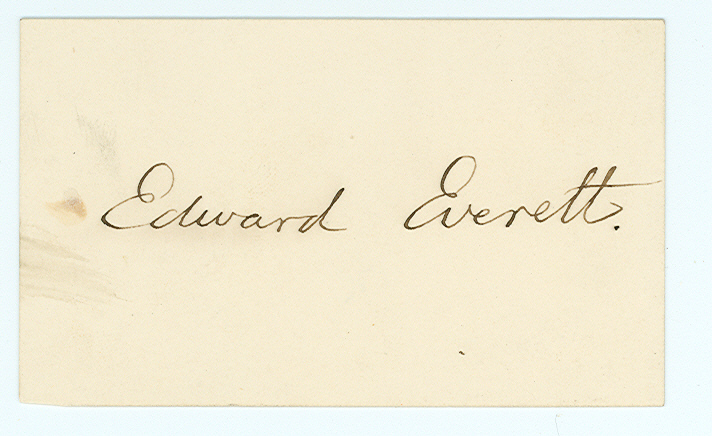 Edward Everett.